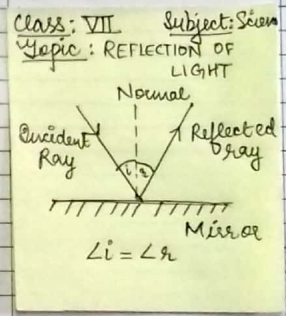 Class: VII Subject: Scien
Topic: REFLECTION OF
LIGHT
Normal
Incident Reflected
Ray ray
i r
Mirror
∠i = ∠r